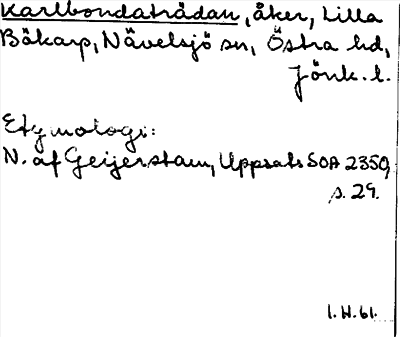 Karlbondatrådan, åker, Lilla
Bäkarp, Nävelsjö sn, Östra hd,
Jönk. l.
Etymologi:
N. af Geijerstam, Uppsats SOA 2350,
s. 29.
I.H.61.